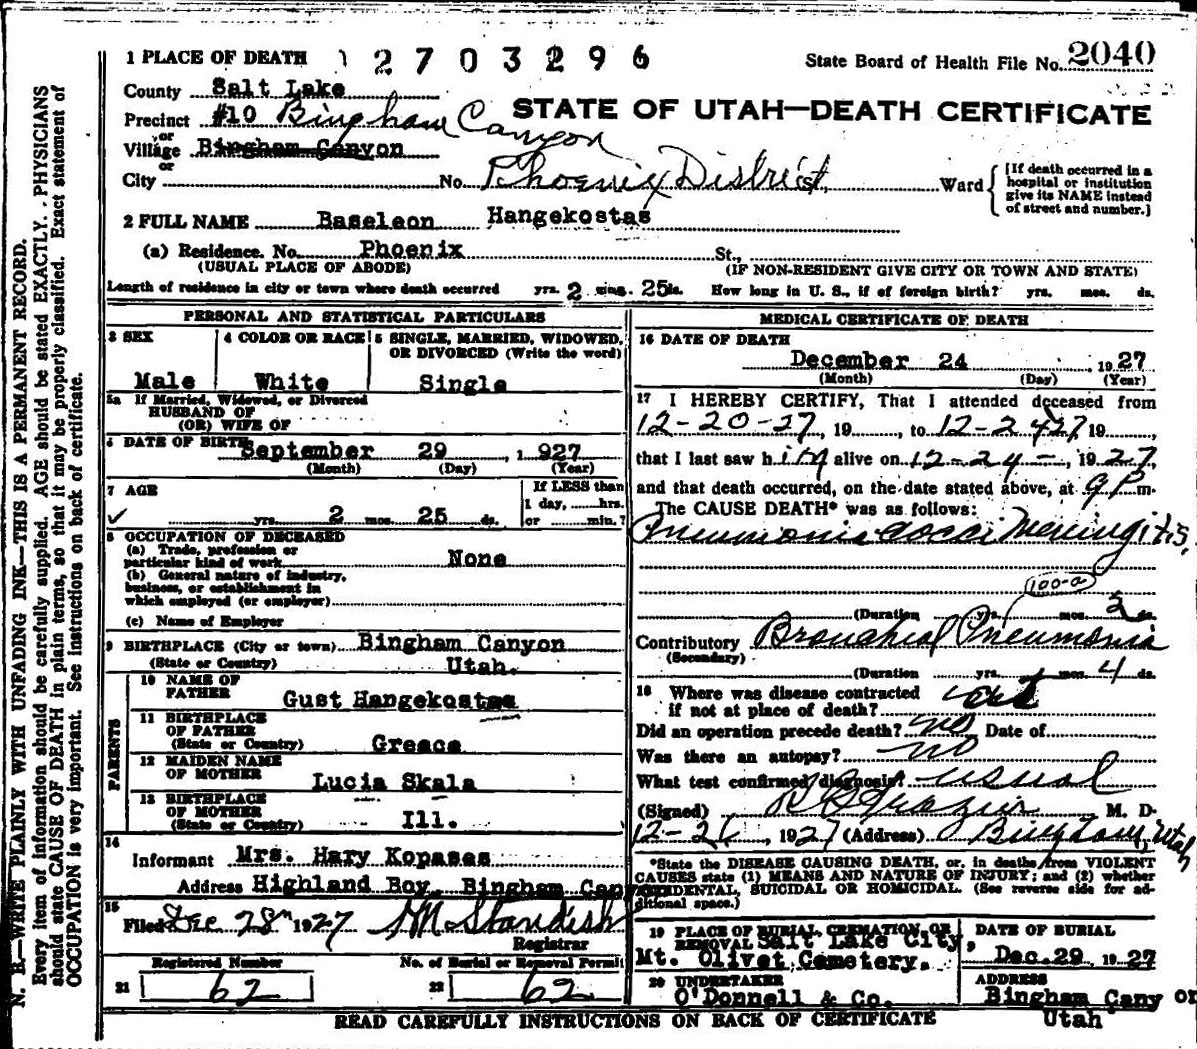 1 PLACE OF DEATH 2703296
State Board of Health File No. 2040
County Salt Lake
STATE OF UTAH—DEATH CERTIFICATE
Precinct #10 Bingham Canyon
or
Village Bingham Canyon
or
City No. Phoenix District St, Ward
[If death occurred in a
hospital or institution
give its NAME instead
of street and number.]
2 FULL NAME Baseleon Hangekostas
(a) Residence. No. Phoenix St.,
(USUAL PLACE OF ABODE) (IF NON-RESIDENT GIVE CITY OR TOWN AND STATE)
Length of residence in city or town where death occurred yrs. 2 mos. 25 ds. How long in U. S., if of foreign birth? yrs. mos. ds.
PERSONAL AND STATISTICAL PARTICULARS
3 SEX
Male
4 COLOR OR RACE
White
5 SINGLE, MARRIED, WIDOWED,
OR DIVORCED (Write the word)
Single
5a If Married, Widowed, or Divorced
HUSBAND OF
(OR) WIFE OF
6 DATE OF BIRTH September 29 1 927
(Month) (Day) (Year)
7 AGE
yrs. 2 mos. 25 ds.
If LESS than
1 day, hrs.
or min.?
8 OCCUPATION OF DECEASED
(a) Trade, profession or
particular kind of work None
(b) General nature of industry,
business, or establishment in
which employed (or employer)
(c) Name of Employer
9 BIRTHPLACE (City or town) Bingham Canyon
(State or Country) Utah.
PARENTS
10 NAME OF
FATHER Gust Hangekostas
11 BIRTHPLACE
OF FATHER
(State or Country) Greece
12 MAIDEN NAME
OF MOTHER Lucia Skala
13 BIRTHPLACE
OF MOTHER
(State or Country) Ill.
14
Informant Mrs. Hary Kopases
Address Highland Boy, Bingham Can
15
Filed Dec 28th 1927
Registrar
Registered Number No. of Burial or Removal Permit
21 62 22 62
MEDICAL CERTIFICATE OF DEATH
16 DATE OF DEATH
December 24 1927
(Month) (Day) (Year)
17 I HEREBY CERTIFY, That I attended deceased from
12-20-27, 19 , to 12-24-27 19 ,
that I last saw him alive on 12-24-, 1927,
and that death occurred, on the date stated above, at 9 P m.
The CAUSE DEATH* was as follows:
Pneumonia cocci Meningitis,
100-a
(Duration yrs. mos. 2 ds.
Contributory Bronchial Pneumonia
(Secondary)
(Duration yrs. mos. 4 ds.
18 Where was disease contracted
if not at place of death?
Did an operation precede death? no Date of
Was there an autopsy? no
What test confirmed diagnosis? usual
(Signed) M. D.
1927 (Address) Bingham, Utah
*State the DISEASE CAUSING DEATH, or, in deaths from VIOLENT
CAUSES state (1) MEANS AND NATURE OF INJURY; and (2) whether
ACCIDENTAL, SUICIDAL OR HOMICIDAL. (See reverse side for ad-
ditional space.)
19 PLACE OF BURIAL, CREMATION, OR
REMOVAL Salt Lake City,
Mt. Olivet Cemetery.
DATE OF BURIAL
Dec. 29 1927
20 UNDERTAKER
O'Donnell & Co.
ADDRESS
Bingham Cany on
Utah
READ CAREFULLY INSTRUCTIONS ON BACK OF CERTIFICATE
N. B.—WRITE PLAINLY WITH UNFADING INK—THIS IS A PERMANENT RECORD.
Every item of information should be carefully supplied. AGE should be stated EXACTLY. PHYSICIANS
should state CAUSE OF DEATH in plain terms, so that it may be properly classified. Exact statement of
OCCUPATION is very important. See instructions on back of certificate.